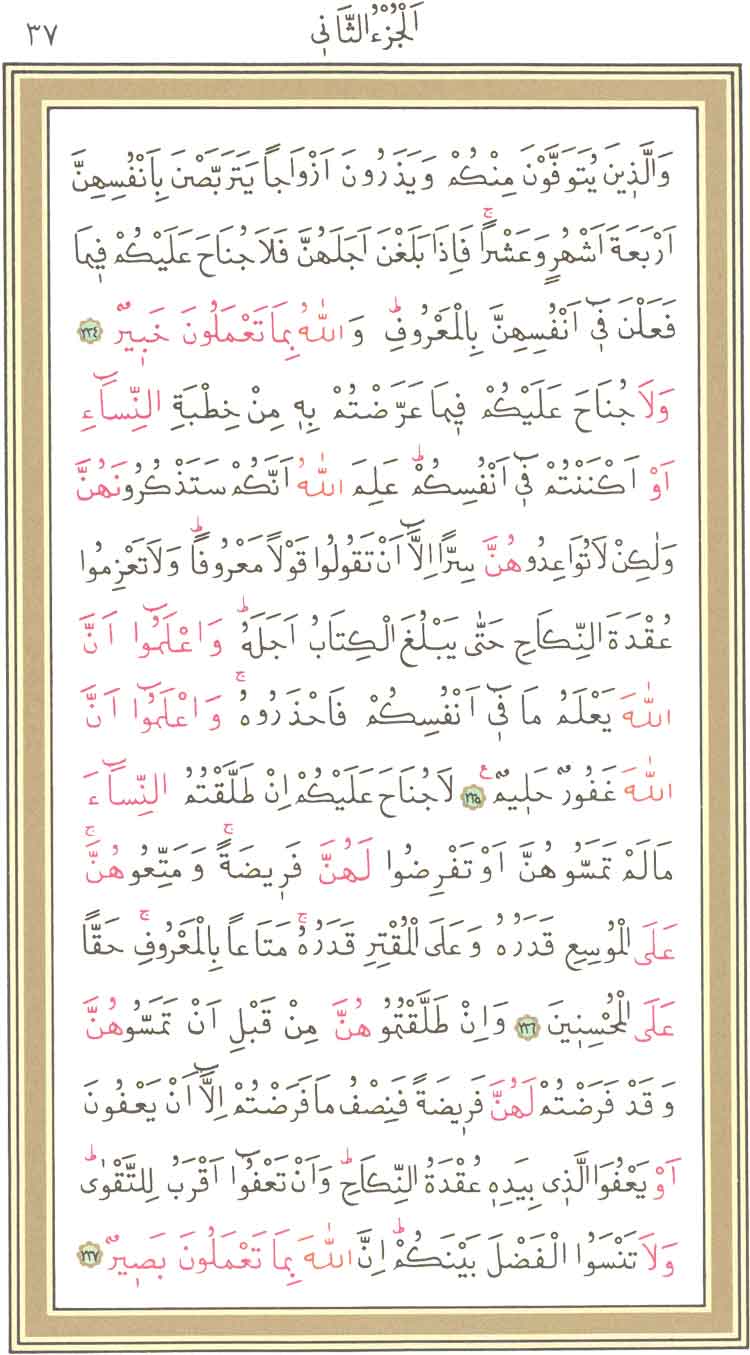 اَلْجُزْءُ الثَّانٖي
٣٧
وَالَّذٖينَ يُتَوَفَّوْنَ مِنْكُمْ وَيَذَرُونَ اَزْوَاجاً يَتَرَبَّصْنَ بِاَنْفُسِهِنَّ
اَرْبَعَةَ اَشْهُرٍ وَعَشْراًۚ فَاِذَا بَلَغْنَ اَجَلَهُنَّ فَلَا جُنَاحَ عَلَيْكُمْ فٖيمَا
فَعَلْنَ فٖٓي اَنْفُسِهِنَّ بِالْمَعْرُوفِؕ وَاللّٰهُ بِمَا تَعْمَلُونَ خَبٖيرٌ ٢٣٤
وَلَا جُنَاحَ عَلَيْكُمْ فٖيمَا عَرَّضْتُمْ بِهٖ مِنْ خِطْبَةِ النِّسَٓاءِ
اَوْ اَكْنَنْتُمْ فٖٓي اَنْفُسِكُمْؕ عَلِمَ اللّٰهُ اَنَّكُمْ سَتَذْكُرُونَهُنَّ
وَلٰكِنْ لَا تُوَاعِدُوهُنَّ سِرًّا اِلَّٓا اَنْ تَقُولُوا قَوْلاً مَعْرُوفاًؕ وَلَا تَعْزِمُوا
عُقْدَةَ النِّكَاحِ حَتّٰى يَبْلُغَ الْكِتَابُ اَجَلَهُؕ وَاعْلَمُٓوا اَنَّ
اللّٰهَ يَعْلَمُ مَا فٖٓي اَنْفُسِكُمْ فَاحْذَرُوهُۚ وَاعْلَمُٓوا اَنَّ
اللّٰهَ غَفُورٌ حَلٖيمٌ ع ٢٣٥ لَا جُنَاحَ عَلَيْكُمْ اِنْ طَلَّقْتُمُ النِّسَٓاءَ
مَا لَمْ تَمَسُّوهُنَّ اَوْ تَفْرِضُوا لَهُنَّ فَرٖيضَةًۚ وَمَتِّعُوهُنَّۚ
عَلَى الْمُوسِعِ قَدَرُهُ وَعَلَى الْمُقْتِرِ قَدَرُهُۚ مَتَاعاً بِالْمَعْرُوفِۚ حَقًّا
عَلَى الْمُحْسِنٖينَ ٢٣٦ وَاِنْ طَلَّقْتُمُوهُنَّ مِنْ قَبْلِ اَنْ تَمَسُّوهُنَّ
وَقَدْ فَرَضْتُمْ لَهُنَّ فَرٖيضَةً فَنِصْفُ مَا فَرَضْتُمْ اِلَّٓا اَنْ يَعْفُونَ
اَوْ يَعْفُوَا الَّذٖي بِيَدِهٖ عُقْدَةُ النِّكَاحِؕ وَاَنْ تَعْفُٓوا اَقْرَبُ لِلتَّقْوٰىؕ
وَلَا تَنْسَوُا الْفَضْلَ بَيْنَكُمْؕ اِنَّ اللّٰهَ بِمَا تَعْمَلُونَ بَصٖيرٌ ٢٣٧